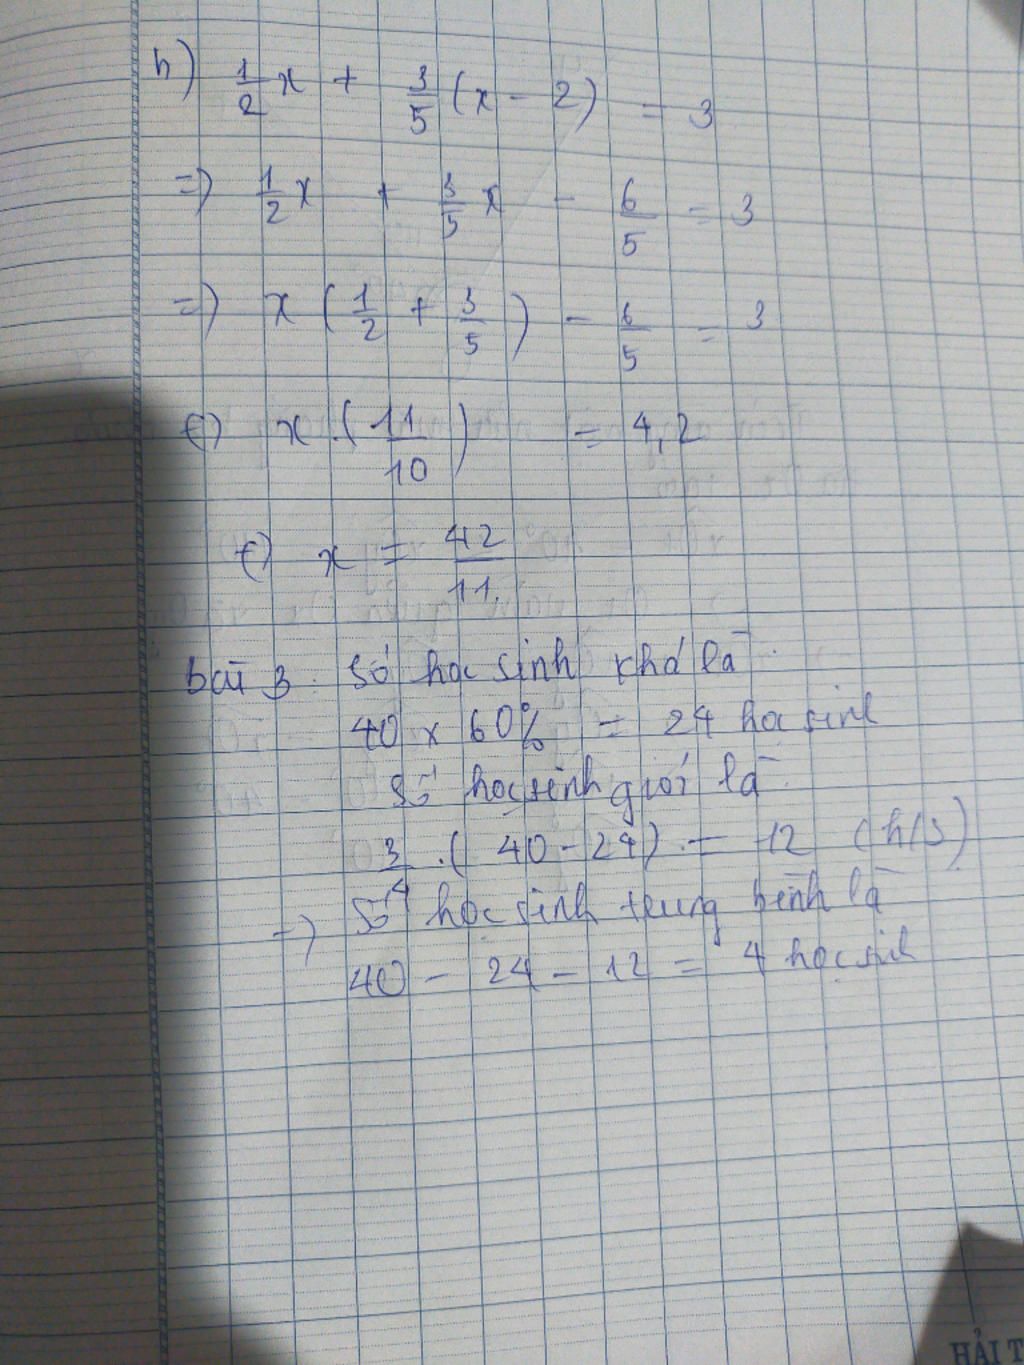 h) 1/2 x + 3/5 (x - 2) = 3
=) 1/2 x + 3/5 x - 6/5 = 3
=) x (1/2 + 3/5) - 6/5 = 3
(=) x . (11/10) = 4,2
(=) x = 42/11.
bài 3. Số học sinh khá là
40 x 60% = 24 học sinh
Số học sinh giỏi là
3/4 . (40 - 24) = 12 (h/s)
=) Số học sinh trung bình là
40 - 24 - 12 = 4 học sinh
HẢI T